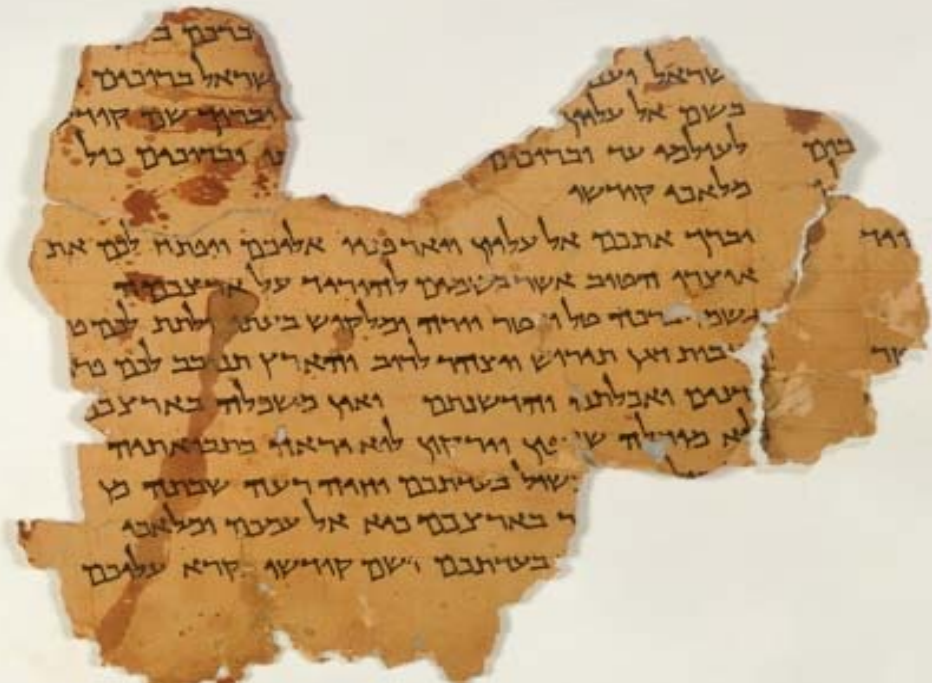 ברכם ב
שראל וענ שראל ברוכים
בשם אל עליון וברוך שם קודש
לעולמי עד וברוכים וברוכים כול
מלאכי קודשו
יברך אתכם אל עליון ויאר פניו אליכם ויפתח לכם את
אוצרו הטוב אשר בשמים להוריד על ארצכמה
גשמי ברכה טל ומטר יורה ומלקוש בעתו ולתת לכם פ
נובות דגן תירוש ויצהר לרוב והארץ תנובב לכם פרי
דנים ואכלתם והדשנתם ואין משכלה בארצכם
לא מוחלה שדפון וירקון לוא יראה בתבואתיה
שול בעדתכם וחיה רעה שבתה מן
ר בארצכם כיא אל עמכם ומלאכי
בעדתכם ושם קודשו נקרא עליכם